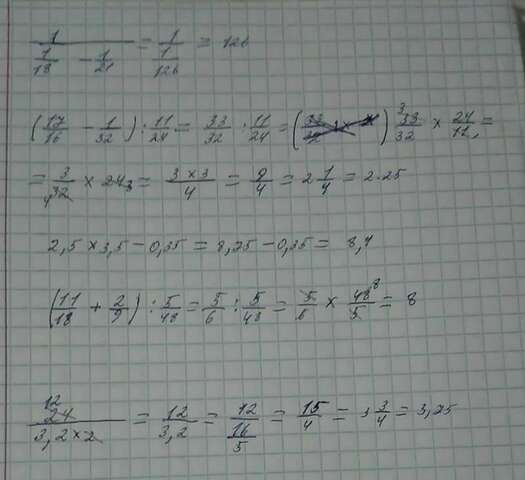 1/(1/18 - 1/21) = 1/(1/126) = 126
(17/16 - 1/32) : 11/24 = 33/32 : 11/24 = 33/32 × 24/11 =
= 3/32 × 24 = (3 × 3)/4 = 9/4 = 2 1/4 = 2.25
2,5 × 3,5 - 0,35 = 8,75 - 0,35 = 8,4
(11/18 + 2/9) : 5/48 = 5/6 : 5/48 = 5/6 × 48/5 = 8
24/(3,2 × 2) = 12/3,2 = 12/(16/5) = 15/4 = 3 3/4 = 3,75